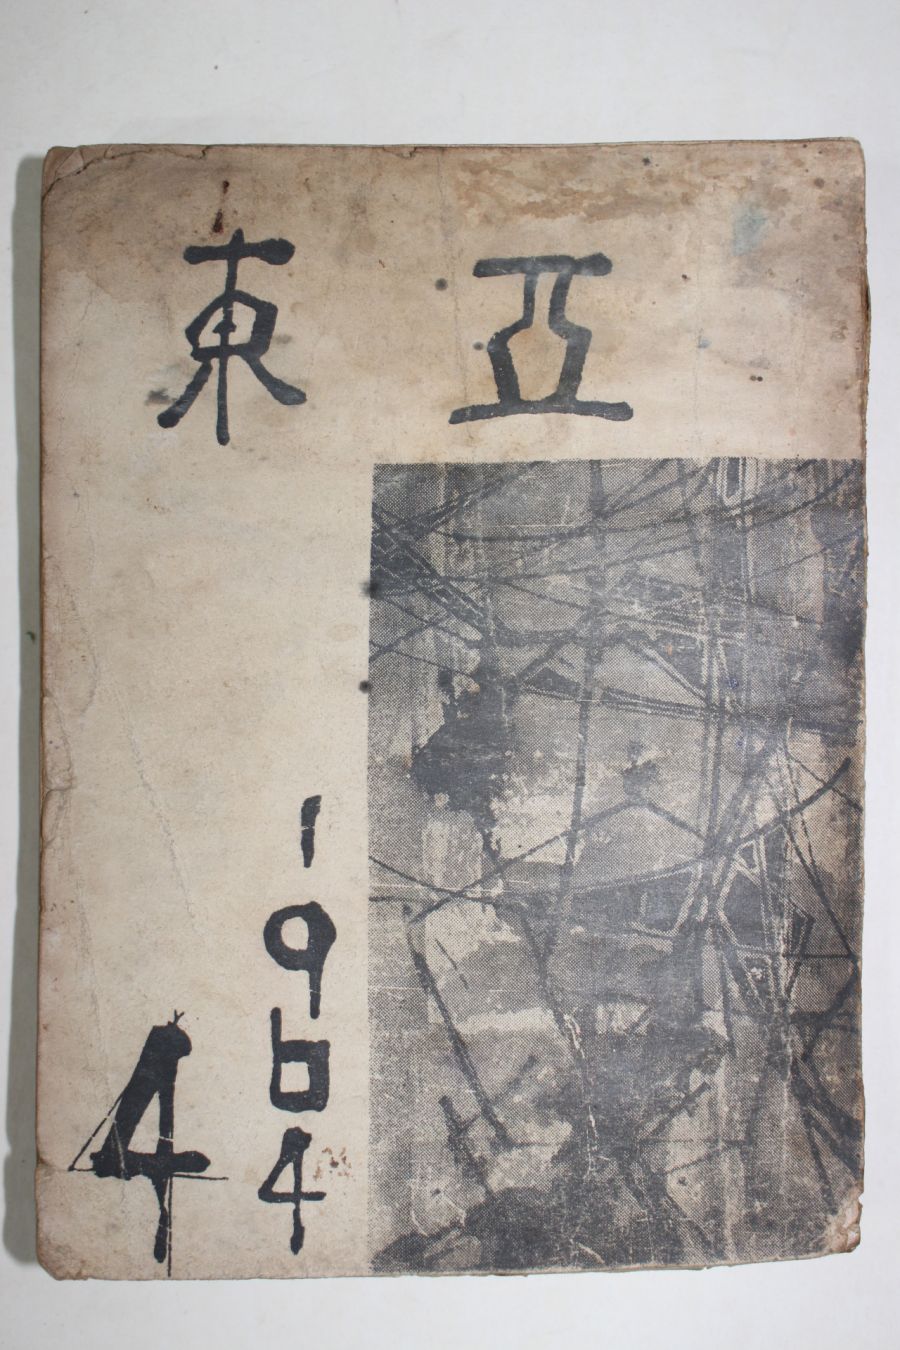 東亞
1964
4